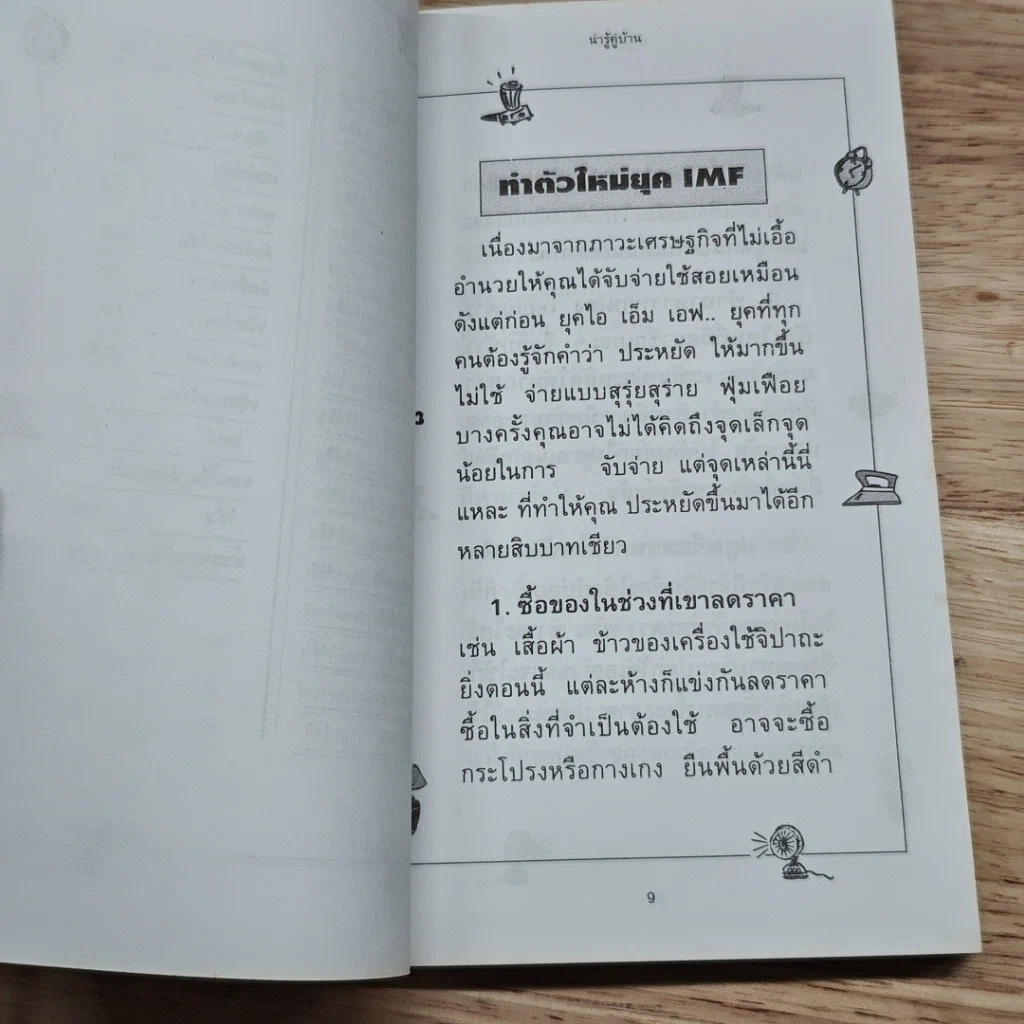 น่ารู้คู่บ้าน
ทำตัวใหม่ยุค IMF
เนื่องมาจากภาวะเศรษฐกิจที่ไม่เอื้อ
อำนวยให้คุณได้จับจ่ายใช้สอยเหมือน
ดังแต่ก่อน ยุคไอ เอ็ม เอฟ.. ยุคที่ทุก
คนต้องรู้จักคำว่า ประหยัด ให้มากขึ้น
ไม่ใช้ จ่ายแบบสุรุ่ยสุร่าย ฟุ่มเฟือย
บางครั้งคุณอาจไม่ได้คิดถึงจุดเล็กจุด
น้อยในการ จับจ่าย แต่จุดเหล่านี้นี่
แหละ ที่ทำให้คุณ ประหยัดขึ้นมาได้อีก
หลายสิบบาทเชียว
1. ซื้อของในช่วงที่เขาลดราคา
เช่น เสื้อผ้า ข้าวของเครื่องใช้จิปาถะ
ยิ่งตอนนี้ แต่ละห้างก็แข่งกันลดราคา
ซื้อในสิ่งที่จำเป็นต้องใช้ อาจจะซื้อ
กระโปรงหรือกางเกง ยืนพื้นด้วยสีดำ
9